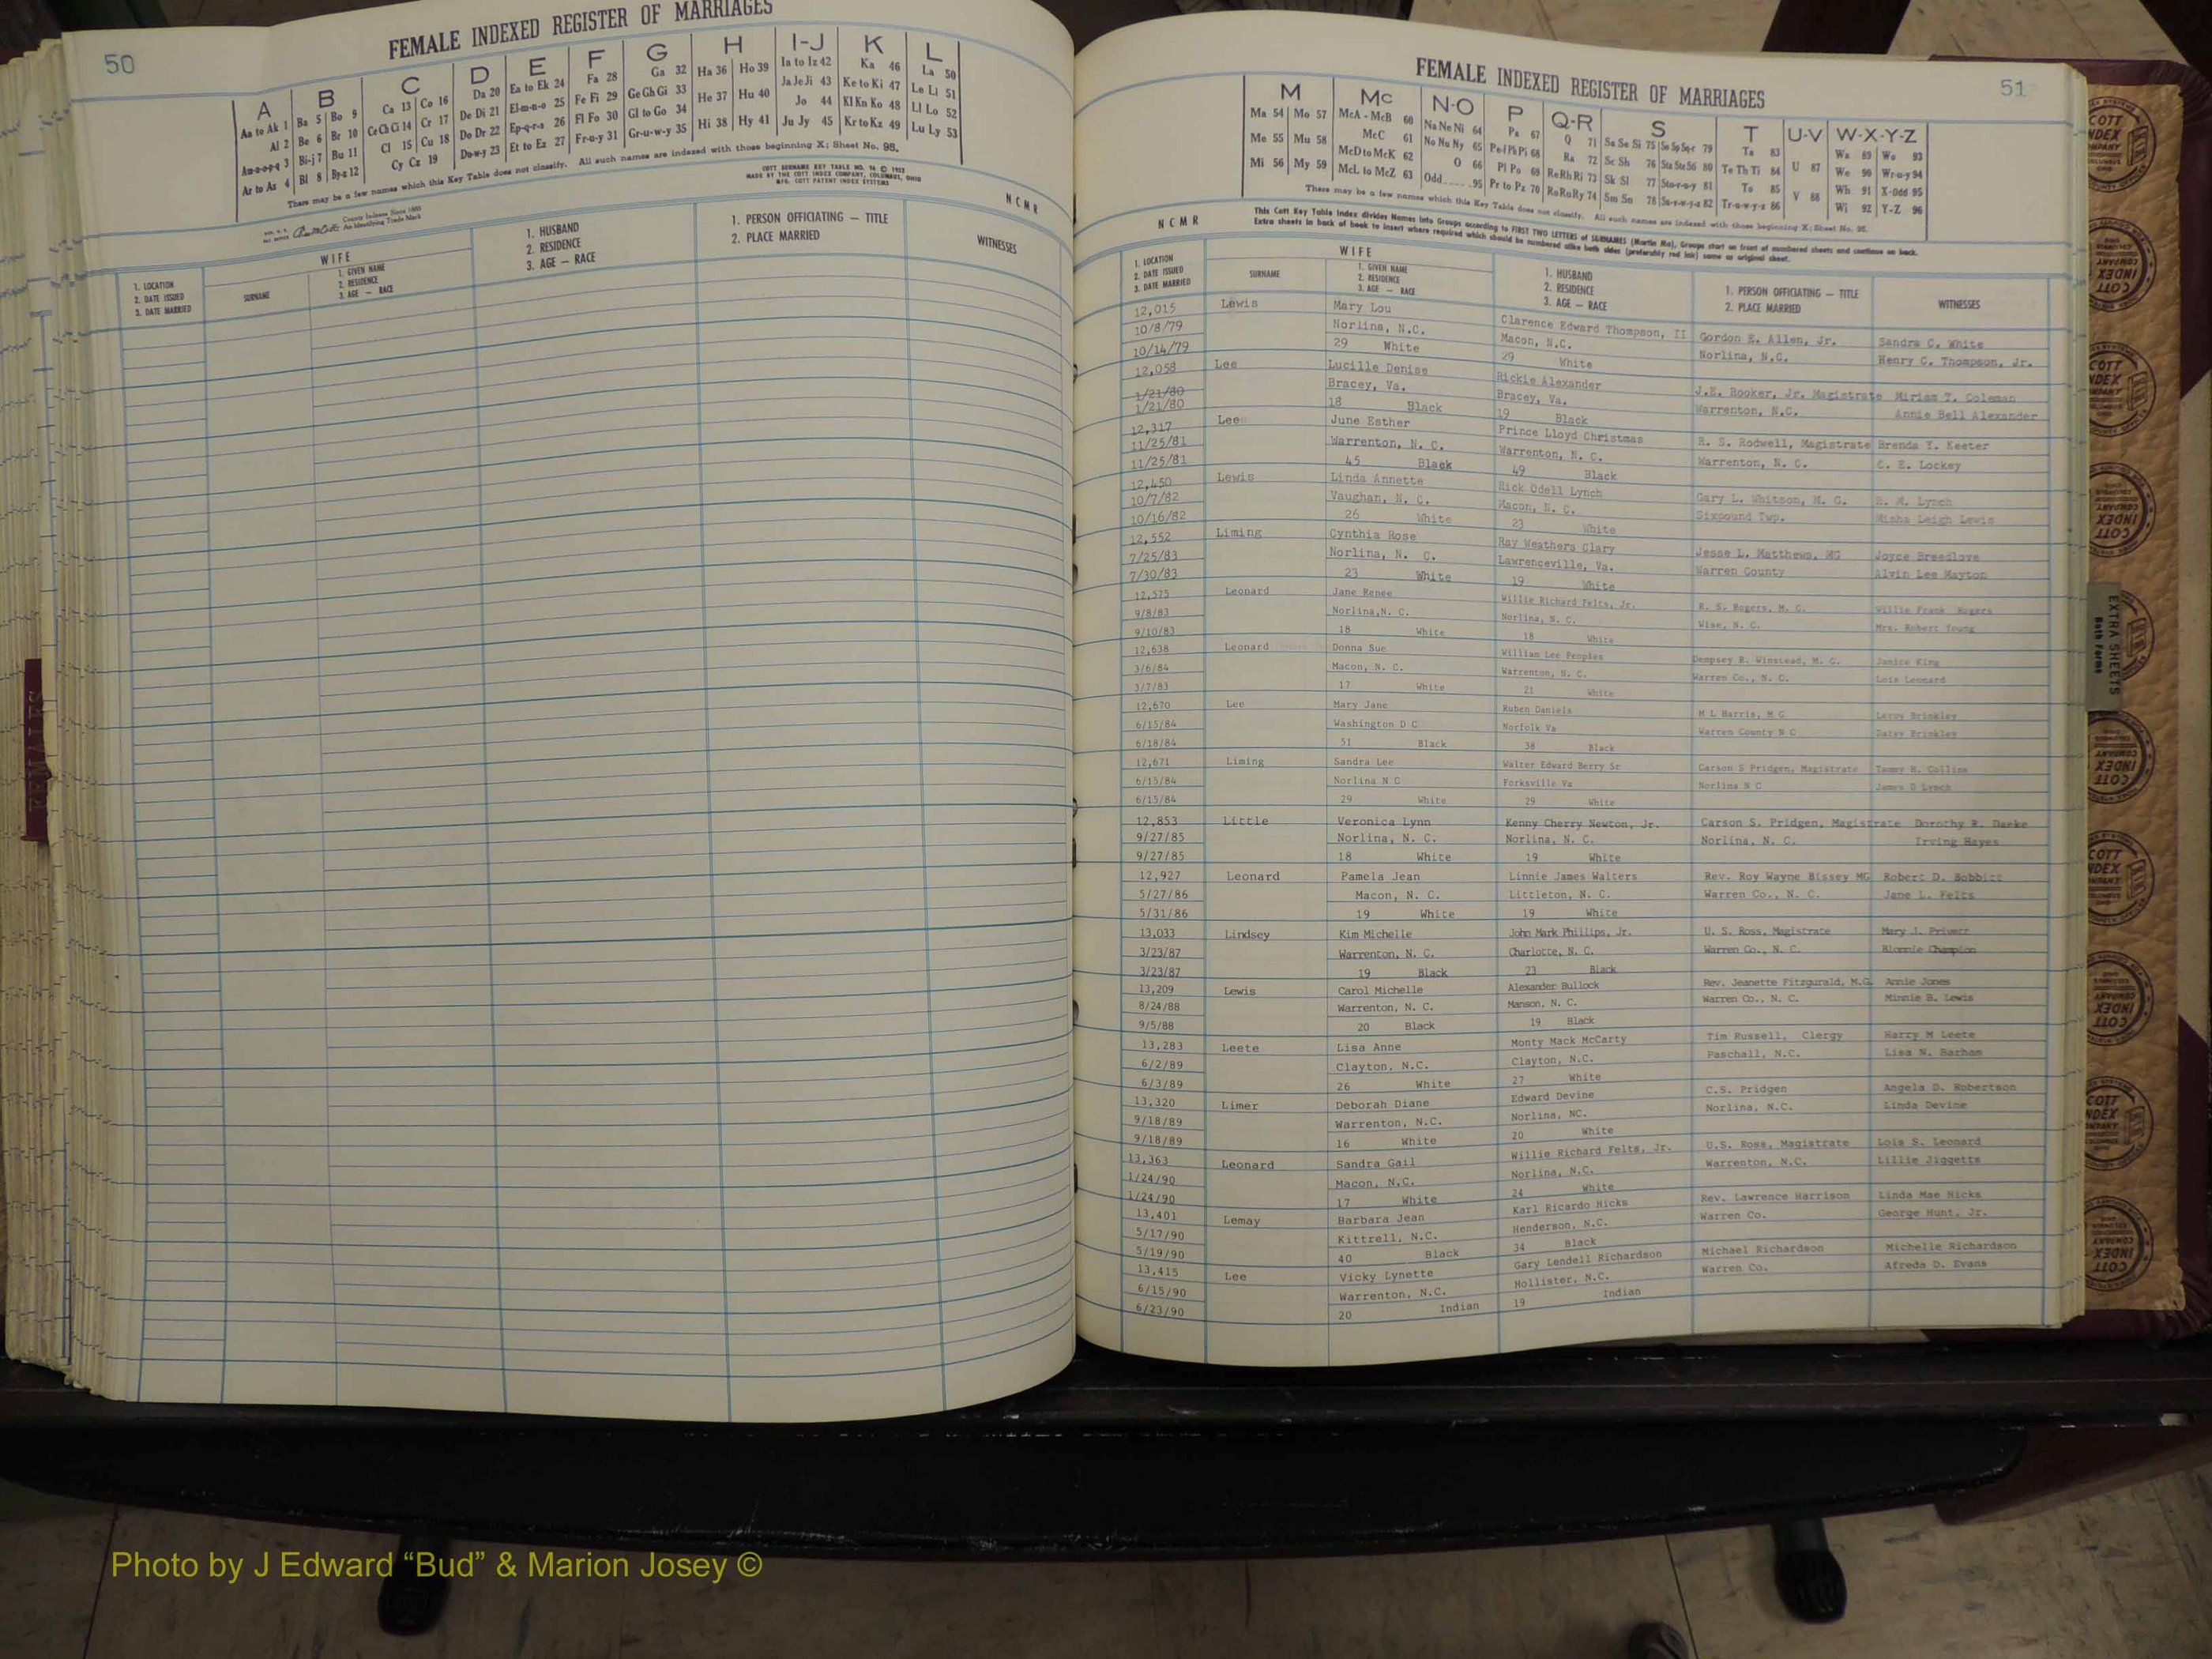 50
FEMALE INDEXED REGISTER OF MARRIAGES
A B C D E F G H I-J K L
Aa to Ak 1 Ba 5 Bo 9 Ca 13 Co 16 Da 20 Ea to Ek 24 Fa 28 Ga 32 Ha 36 Ho 39 Ia to Iz 42 Ka 46 La 50
Al 2 Be 6 Br 10 Ce Ch Ci 14 Cr 17 De Di 21 El-m-n-o 25 Fe Fi 29 Ge Gh Gi 33 He 37 Hu 40 Ja Je Ji 43 Ke to Ki 47 Le Li 51
Am-n-o-p-q 3 Bi-j 7 Bu 11 Cl 15 Cu 18 Do Dr 22 Ep-q-r-s 26 Fl Fo 30 Gl to Go 34 Hi 38 Hy 41 Jo 44 Kl Kn Ko 48 Ll Lo 52
Ar to Az 4 Bl 8 By-z 12 Cy Cz 19 Du-w-y 23 Et to Ez 27 Fr-u-y 31 Gr-u-w-y 35 Ju Jy 45 Kr to Kz 49 Lu Ly 53
There may be a few names which this Key Table does not classify. All such names are indexed with those beginning X; Sheet No. 95.
County Indexes Since 1888
An Identifying Trade Mark
COTT SURNAME KEY TABLE NO. 96 © 1953
MADE BY THE COTT INDEX COMPANY, COLUMBUS, OHIO
MFG. COTT PATENT INDEX SYSTEMS
NCMR
1. LOCATION
2. DATE ISSUED
3. DATE MARRIED
WIFE
SURNAME
1. GIVEN NAME
2. RESIDENCE
3. AGE — RACE
1. HUSBAND
2. RESIDENCE
3. AGE — RACE
1. PERSON OFFICIATING — TITLE
2. PLACE MARRIED
WITNESSES
FEMALES
FEMALE INDEXED REGISTER OF MARRIAGES
51
M Mc N-O P Q-R S T U-V W-X-Y-Z
Ma 54 Mo 57 McA - McB 60 Na Ne Ni 64 Pa 67 Q 71 Sa Se Si 75 So Sp Sq-r 79 Ta 83 U 87 Wa 89 Wo 93
Me 55 Mu 58 McC 61 No Nu Ny 65 Pe-f Ph Pi 68 Ra 72 Sc Sh 76 Sta Ste Sti 80 Te Th Ti 84 V 88 We 90 Wr-u-y 94
Mi 56 My 59 McD to McK 62 O 66 Pl Po 69 Re Rh Ri 73 Sk Sl 77 Sto-r-u-y 81 To 85 Wh 91 X-Odd 95
McL to McZ 63 Odd 95 Pr to Pz 70 Ro Ru Ry 74 Sm Sn 78 Su-v-w-y-z 82 Tr-u-w-y-z 86 Wi 92 Y-Z 96
There may be a few names which this Key Table does not classify. All such names are indexed with those beginning X; Sheet No. 95.
This Cott Key Table Index divides Names into Groups according to FIRST TWO LETTERS of SURNAMES (Martin Ma). Groups start on front of numbered sheets and continue on back.
Extra sheets in back of book to insert where required which should be numbered alike both sides (preferably red ink) same as original sheet.
NCMR
1. LOCATION
2. DATE ISSUED
3. DATE MARRIED
WIFE
SURNAME
1. GIVEN NAME
2. RESIDENCE
3. AGE — RACE
1. HUSBAND
2. RESIDENCE
3. AGE — RACE
1. PERSON OFFICIATING — TITLE
2. PLACE MARRIED
WITNESSES
12,015 Lewis Mary Lou Clarence Edward Thompson, II Gordon E. Allen, Jr. Sandra C. White
10/8/79 Norlina, N.C. Macon, N.C. Norlina, N.C. Henry C. Thompson, Jr.
10/14/79 29 White 29 White
12,058 Lee Lucille Denise Rickie Alexander J.E. Rooker, Jr. Magistrate Miriam T. Coleman
1/21/80 Bracey, Va. Bracey, Va. Warrenton, N.C. Annie Bell Alexander
1/21/80 18 Black 19 Black
12,317 Lee June Esther Prince Lloyd Christmas R. S. Rodwell, Magistrate Brenda Y. Keeter
11/25/81 Warrenton, N. C. Warrenton, N. C. Warrenton, N. C. C. E. Lockey
11/25/81 45 Black 49 Black
12,450 Lewis Linda Annette Rick Odell Lynch Gary L. Whitson, M. G. H. M. Lynch
10/7/82 Vaughan, N. C. Macon, N. C. Sixpound Twp. Misha Leigh Lewis
10/16/82 26 White 23 White
12,552 Liming Cynthia Rose Ray Weathers Clary Jesse L. Matthews, MG Joyce Breedlove
7/25/83 Norlina, N. C. Lawrenceville, Va. Warren County Alvin Lee Mayton
7/30/83 23 White 19 White
12,575 Leonard Jane Renee Willie Richard Felts, Jr. R. S. Rogers, M. G. Willie Frank Rogers
9/8/83 Norlina,N. C. Norlina, N. C. Wise, N. C. Mrs. Robert Young
9/10/83 18 White 18 White
12,638 Leonard Donna Sue William Lee Peoples Dempsey R. Winstead, M. G. Janice King
3/6/84 Macon, N. C. Warrenton, N. C. Warren Co., N. C. Lois Leonard
3/7/83 17 White 21 White
12,670 Lee Mary Jane Ruben Daniels M L Harris, M G Leroy Brinkley
6/15/84 Washington D C Norfolk Va Warren County N C Daisy Brinkley
6/18/84 51 Black 38 Black
12,671 Liming Sandra Lee Walter Edward Berry Sr Carson S Pridgen, Magistrate Tammy H. Collins
6/15/84 Norlina N C Forksville Va Norlina N C James D Lynch
6/15/84 29 White 29 White
12,853 Little Veronica Lynn Kenny Cherry Newton, Jr. Carson S. Pridgen, Magistrate Dorothy R.
9/27/85 Norlina, N. C. Norlina, N. C. Norlina, N. C. Irving Hayes
9/27/85 18 White 19 White
12,927 Leonard Pamela Jean Linnie James Walters Rev. Roy Wayne Bissey MG Robert D. Bobbitt
5/27/86 Macon, N. C. Littleton, N. C. Warren Co., N. C. Jane L. Felts
5/31/86 19 White 19 White
13,033 Lindsey Kim Michelle John Mark Phillips, Jr. U. S. Ross, Magistrate Mary J. Privett
3/23/87 Warrenton, N. C. Charlotte, N. C. Warren Co., N. C. Champion
3/23/87 19 Black 23 Black
13,209 Lewis Carol Michelle Alexander Bullock Rev. Jeanette Fitzgurald, M.G. Annie Jones
8/24/88 Warrenton, N. C. Manson, N. C. Warren Co., N. C. Minnie B. Lewis
9/5/88 20 Black 19 Black
13,283 Leete Lisa Anne Monty Mack McCarty Tim Russell, Clergy Harry M Leete
6/2/89 Clayton, N.C. Clayton, N.C. Paschall, N.C. Lisa N. Barham
6/3/89 26 White 27 White
13,320 Limer Deborah Diane Edward Devine C.S. Pridgen Angela D. Robertson
9/18/89 Warrenton, N.C. Norlina, NC. Norlina, N.C. Linda Devine
9/18/89 16 White 20 White
13,363 Leonard Sandra Gail Willie Richard Felts, Jr. U.S. Ross, Magistrate Lois S. Leonard
1/24/90 Macon, N.C. Norlina, N.C. Warrenton, N.C. Lillie Jiggetts
1/24/90 17 White 24 White
13,401 Lemay Barbara Jean Karl Ricardo Hicks Rev. Lawrence Harrison Linda Mae Hicks
5/17/90 Kittrell, N.C. Henderson, N.C. Warren Co. George Hunt, Jr.
5/19/90 40 Black 34 Black
13,415 Lee Vicky Lynette Gary Lendell Richardson Michael Richardson Michelle Richardson
6/15/90 Warrenton, N.C. Hollister, N.C. Warren Co. Afreda D. Evans
6/23/90 20 Indian 19 Indian
EXTRA SHEETS
Both Forms
Photo by J Edward “Bud” & Marion Josey ©